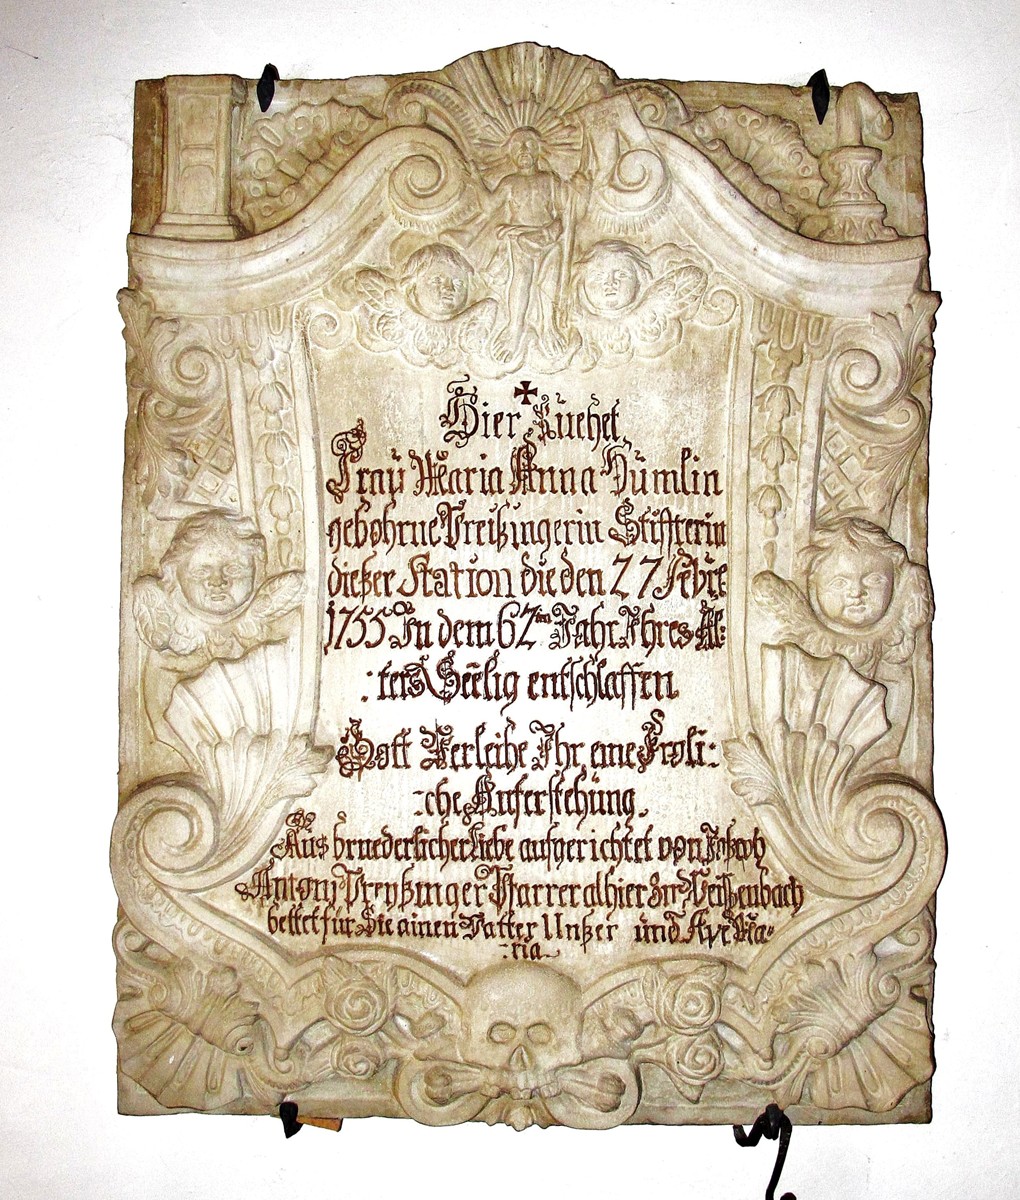 Hier Ruehet
Frau Maria Anna Humlin
gebohrne Preißingerin Stiffterin
dießer Station die den 27 Febr:
1755 In dem 62ten Jahr Ihres Al:
:ters Seelig entschlaffen
Gott Verleihe Ihr eine Froli:
:che Auferstehüng.
Aus bruederlicher liebe aufgerichtet von Jakob
Antoni Preyßinger Pfarrer alhier zu Weißenbach
bettet für Sie ainen Vatter Unßer und Ave Ma=
:ria